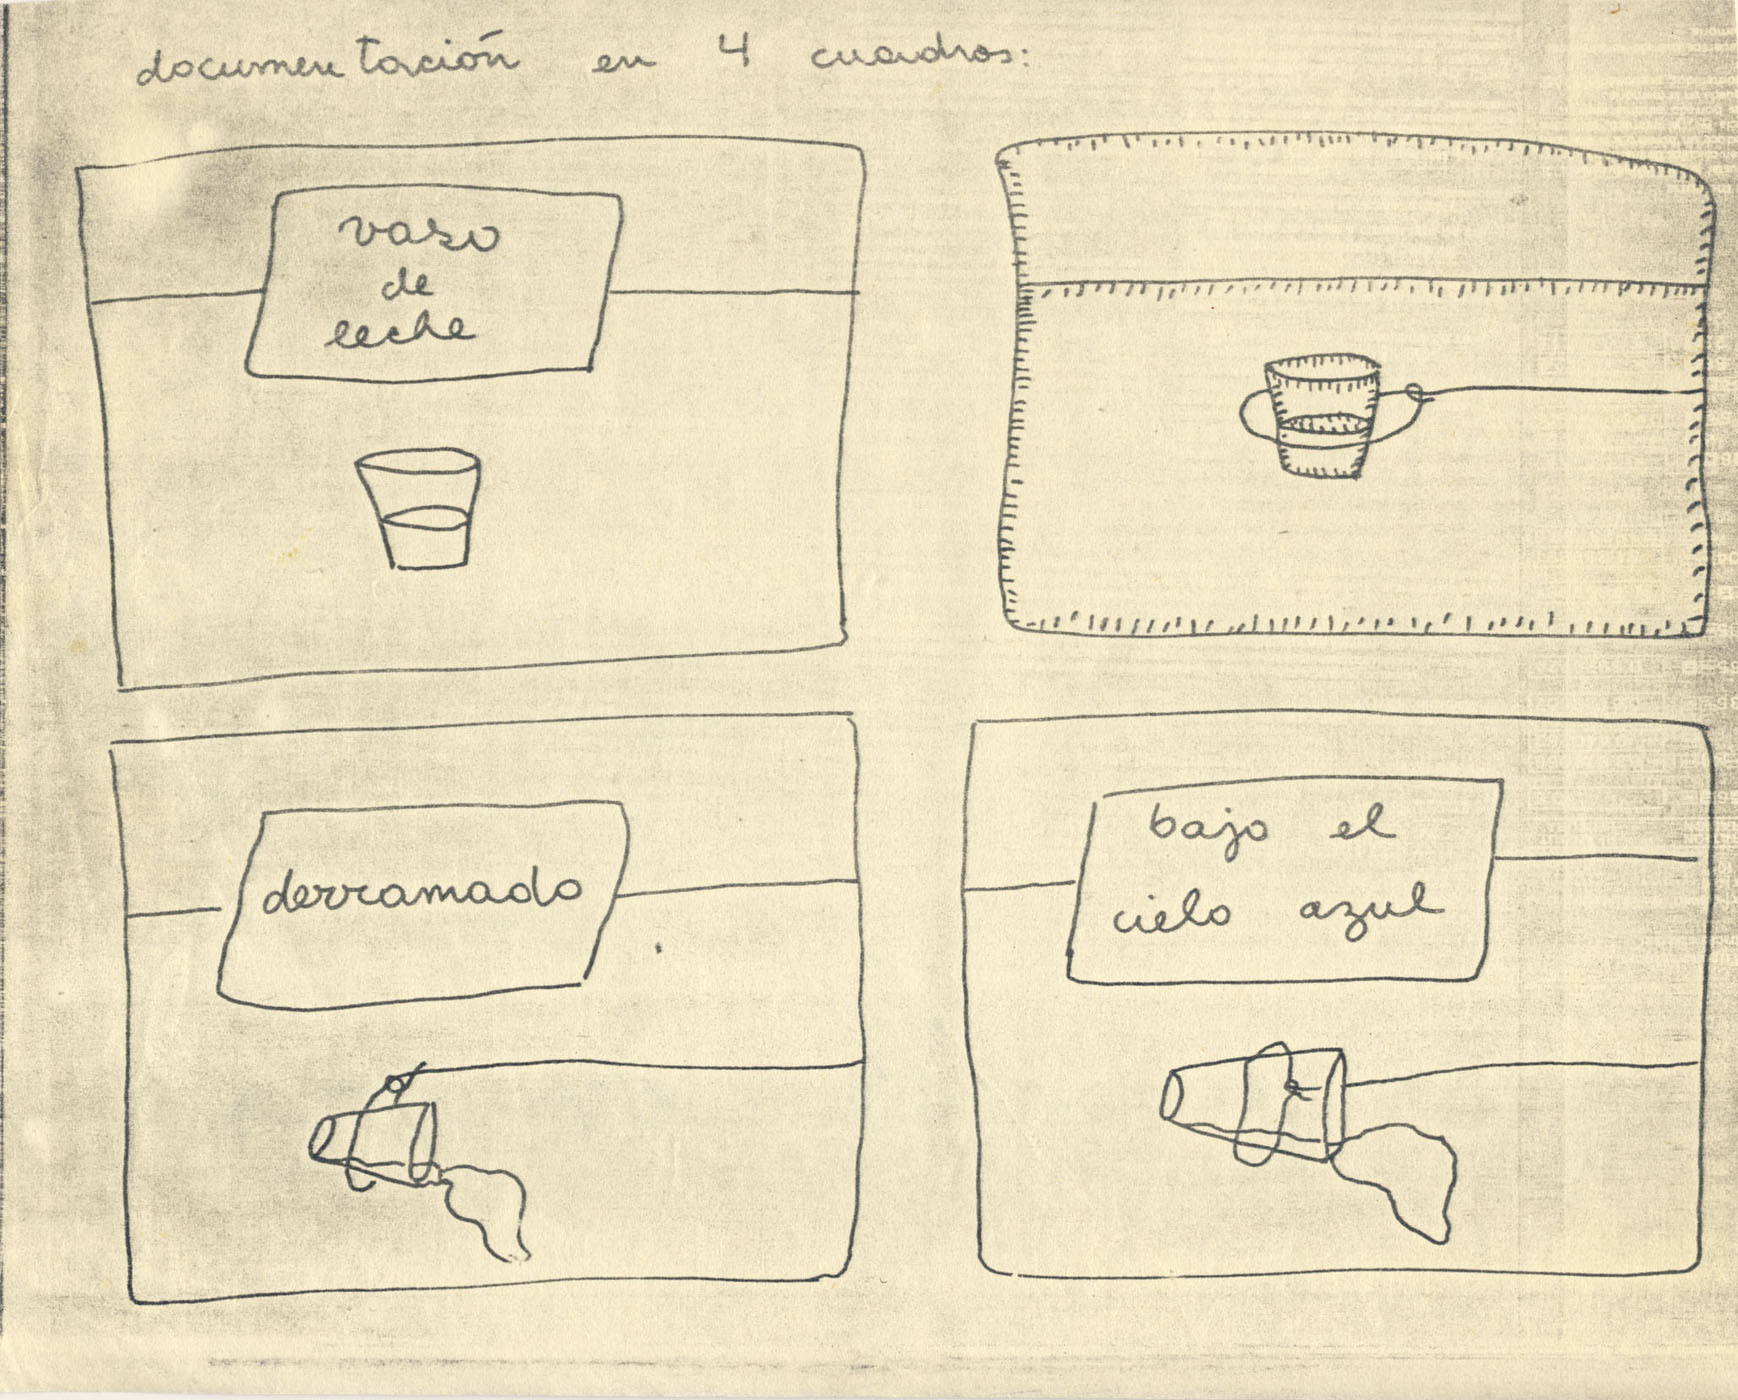 documentación en 4 cuadros:
vaso
de
leche
derramado
bajo el
cielo azul